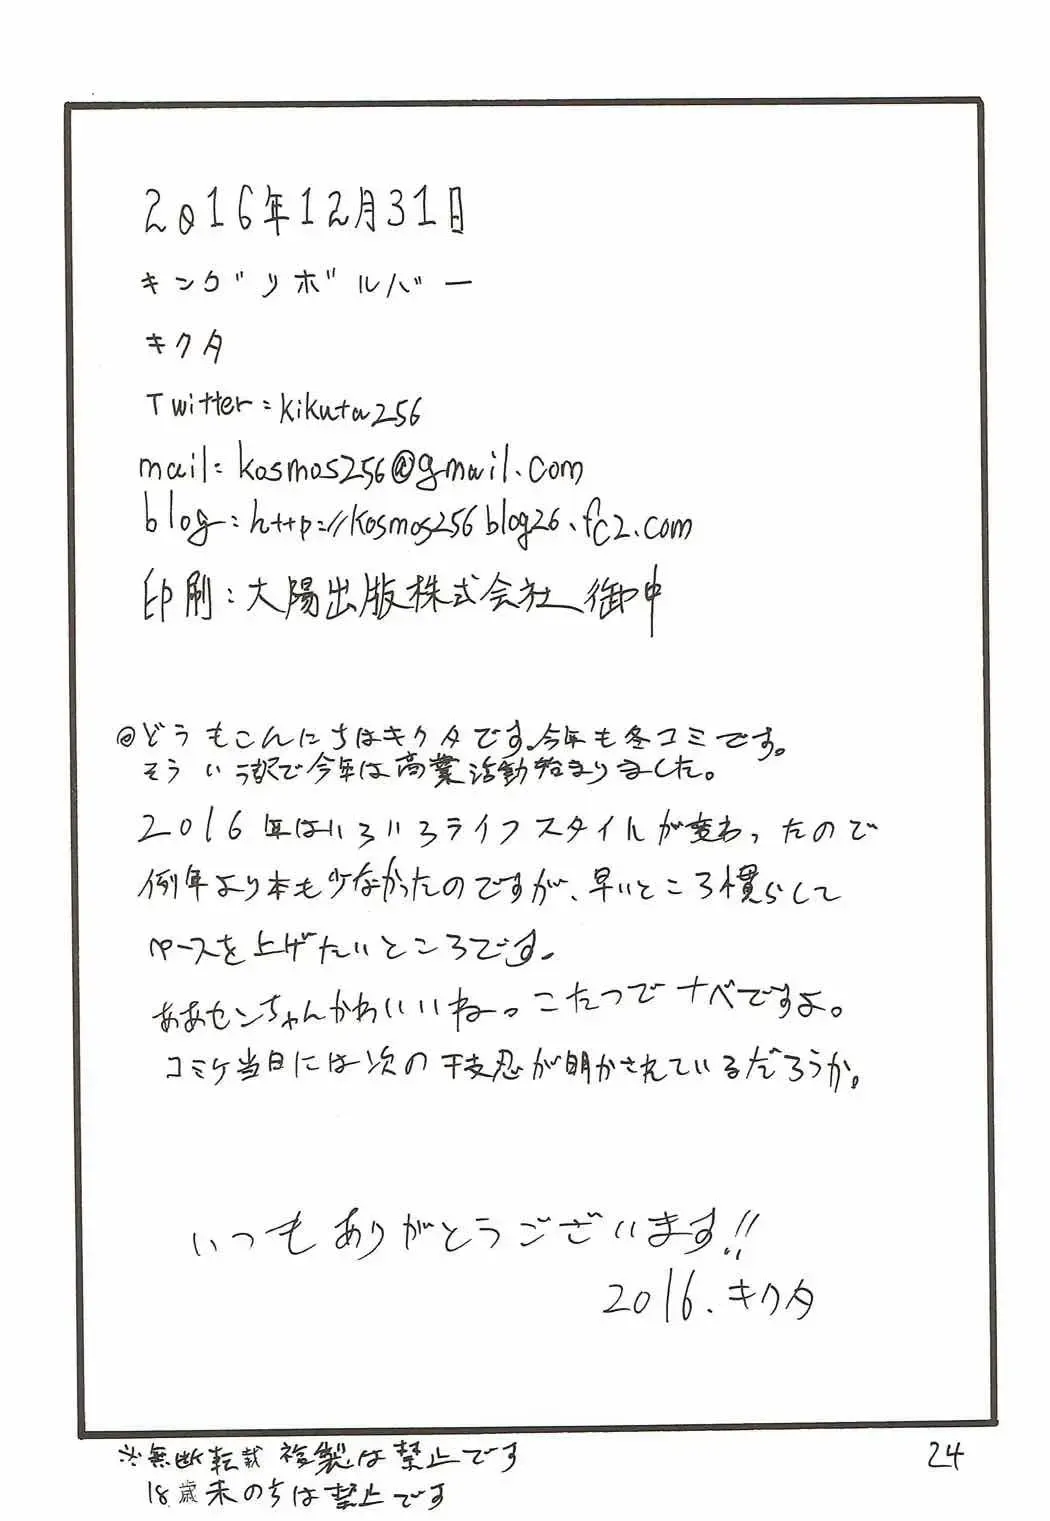 2016年12月31日
キングリボルバー
キクタ
Twitter:kikuta256
mail:kosmos256@gmail.com
blog:http://kosmos256blog26.fc2.com
印刷:大陽出版株式会社 御中
@どうもこんにちはキクタです。今年も冬コミです。
そういう訳で今年は商業活動始まりました。
2016年はいろいろライフスタイルが変わったので
例年より本も少なかったのですが、早いところ慣らして
ペースを上げたいところです。
ああセンちゃんかわいいいね。こたつでナベですよ。
コミケ当日には次の干支忍が明かされているだろうか。
いつもありがとうございます!!
2016.キクタ
※無断転載 複製は禁止です
18歳未のちは禁止です
24